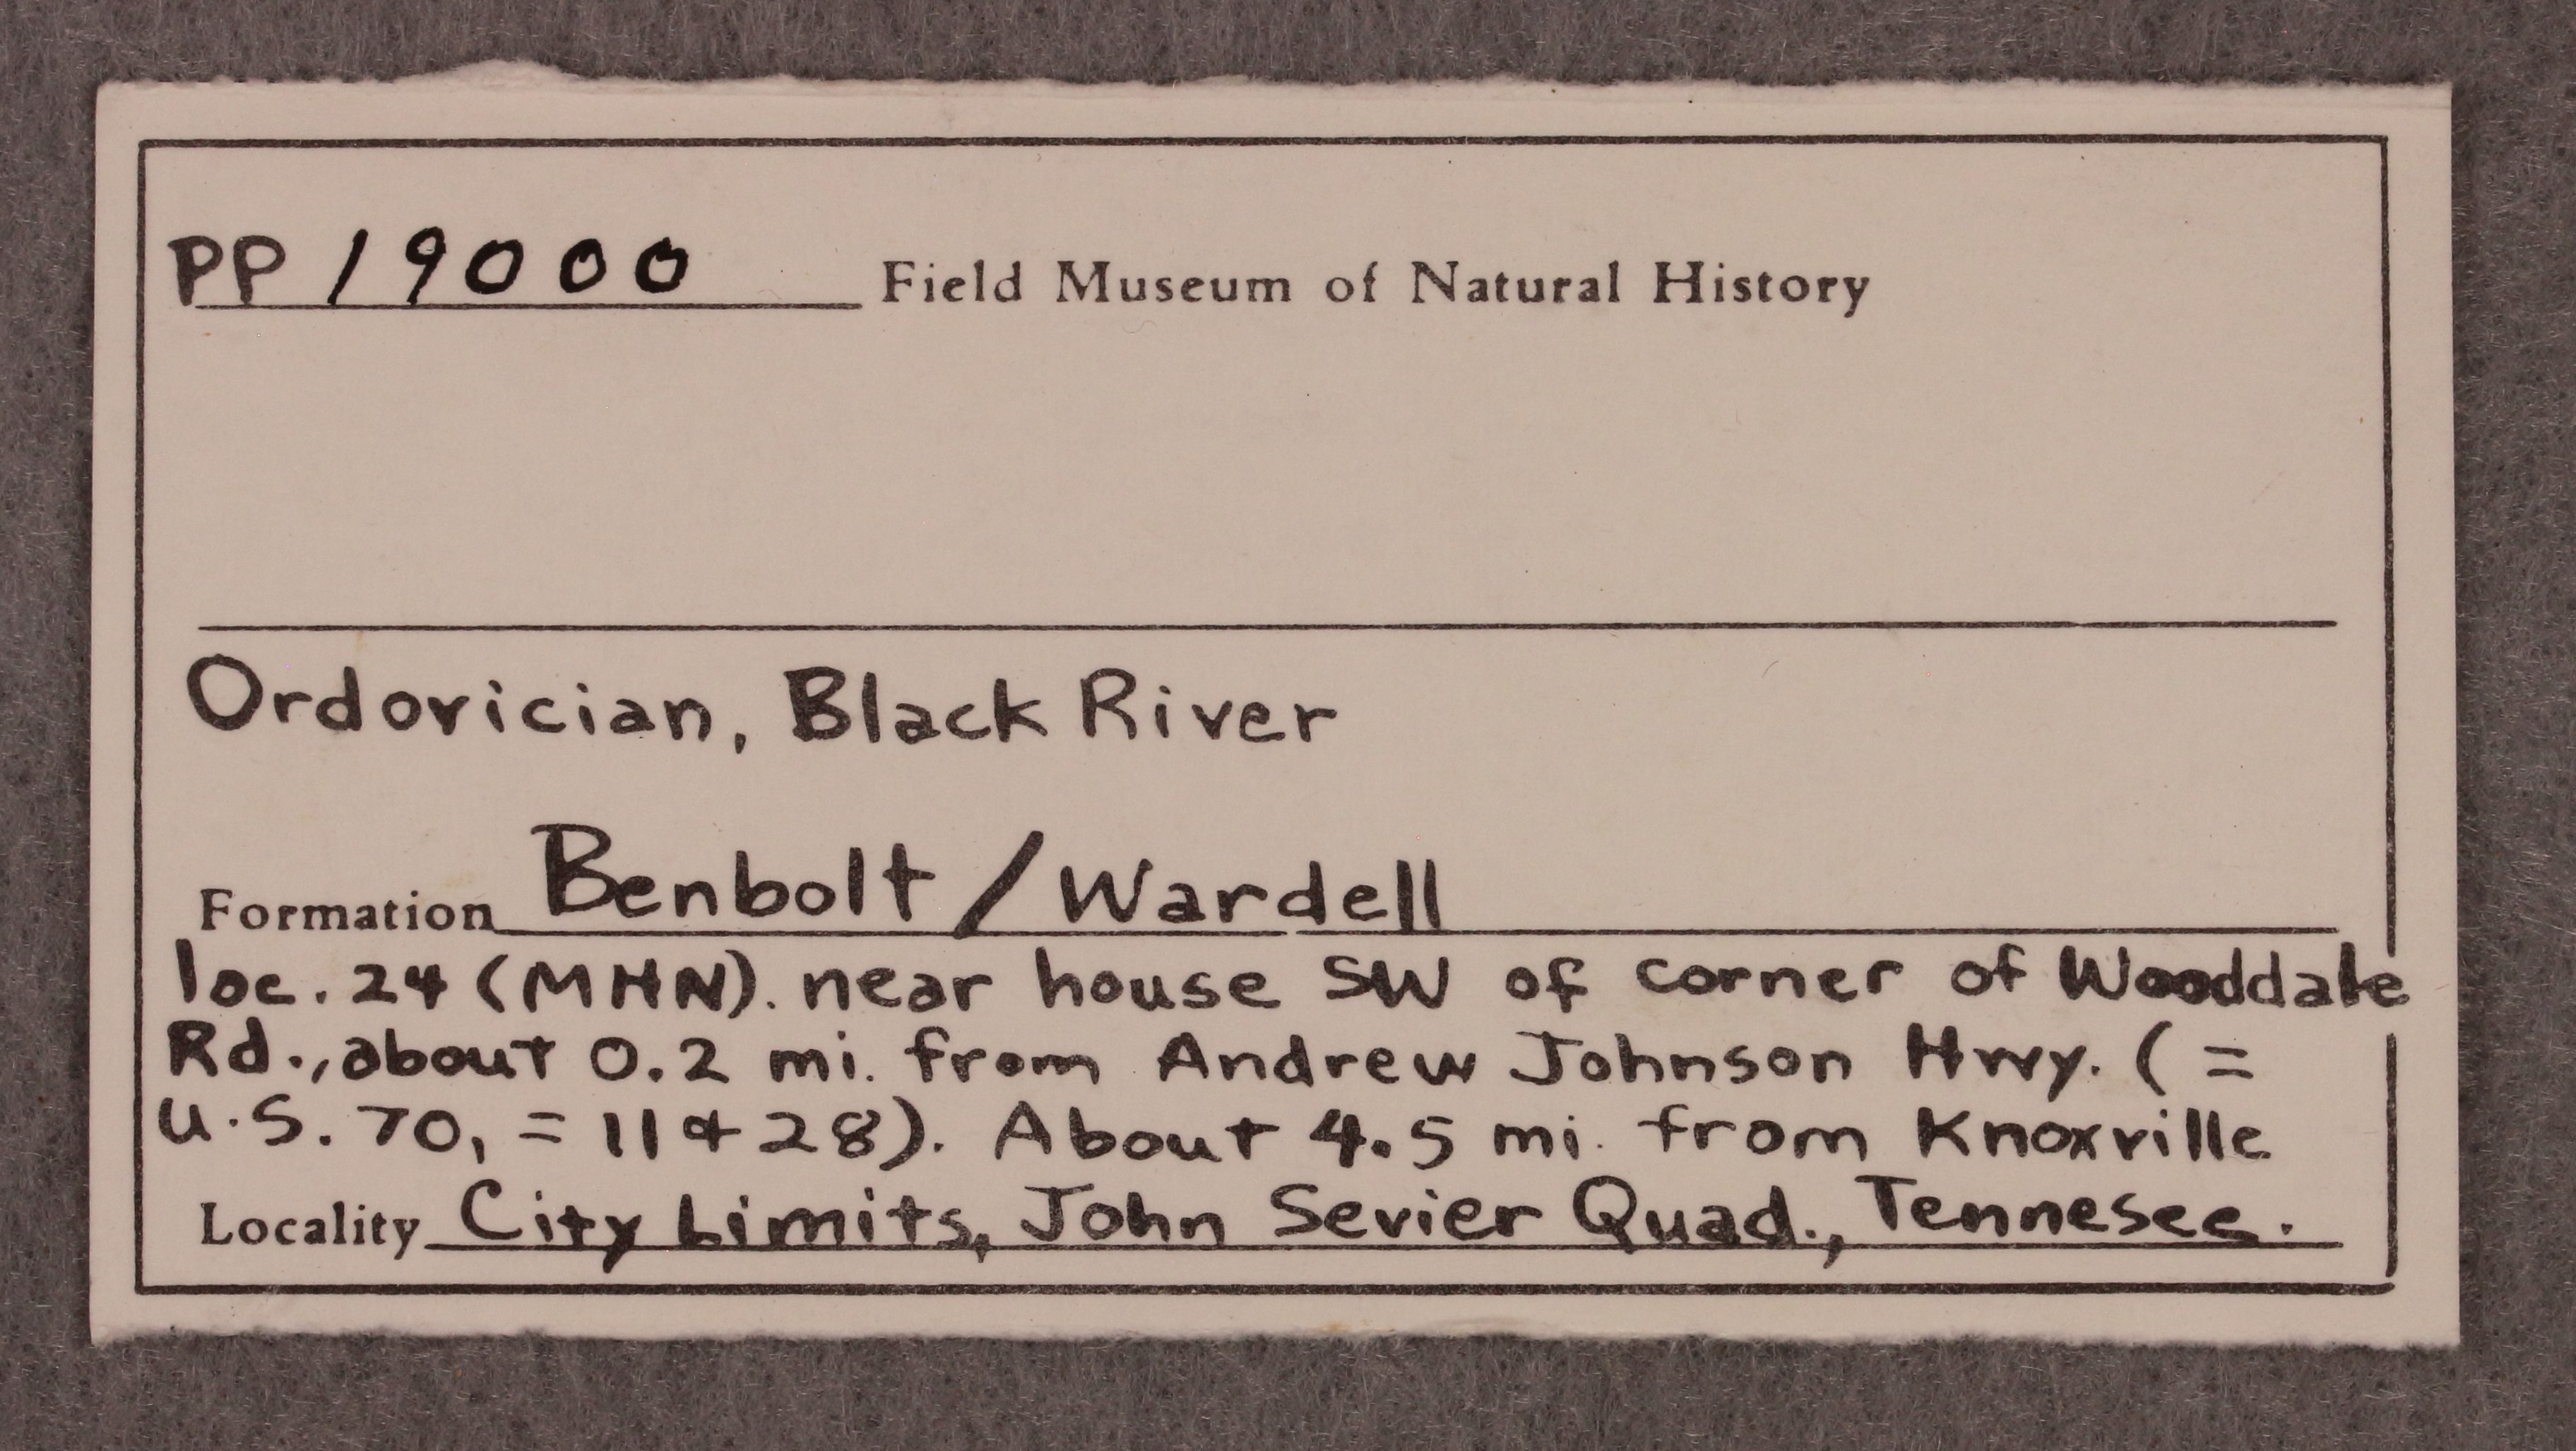 PP 19000 Field Museum of Natural History
Ordovician, Black River
Formation Benbolt / Wardell
loc. 24 (MHN). near house SW of corner of Wooddale
Rd., about 0.2 mi. from Andrew Johnson Hwy. ( =
U.S. 70, = 11 & 28). About 4.5 mi. from Knoxville
Locality City Limits, John Sevier Quad., Tennesee.